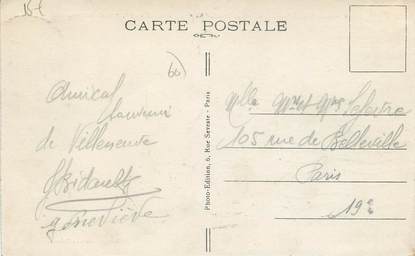 15f
CARTE POSTALE
60
Amical
Souvenir
de Villeneuve
GBidault
geneviève
Photo-Edition, 6, Rue Servate - Paris
Mlle Mr et Mme Lefevre
105 rue de Belleville
Paris
19e